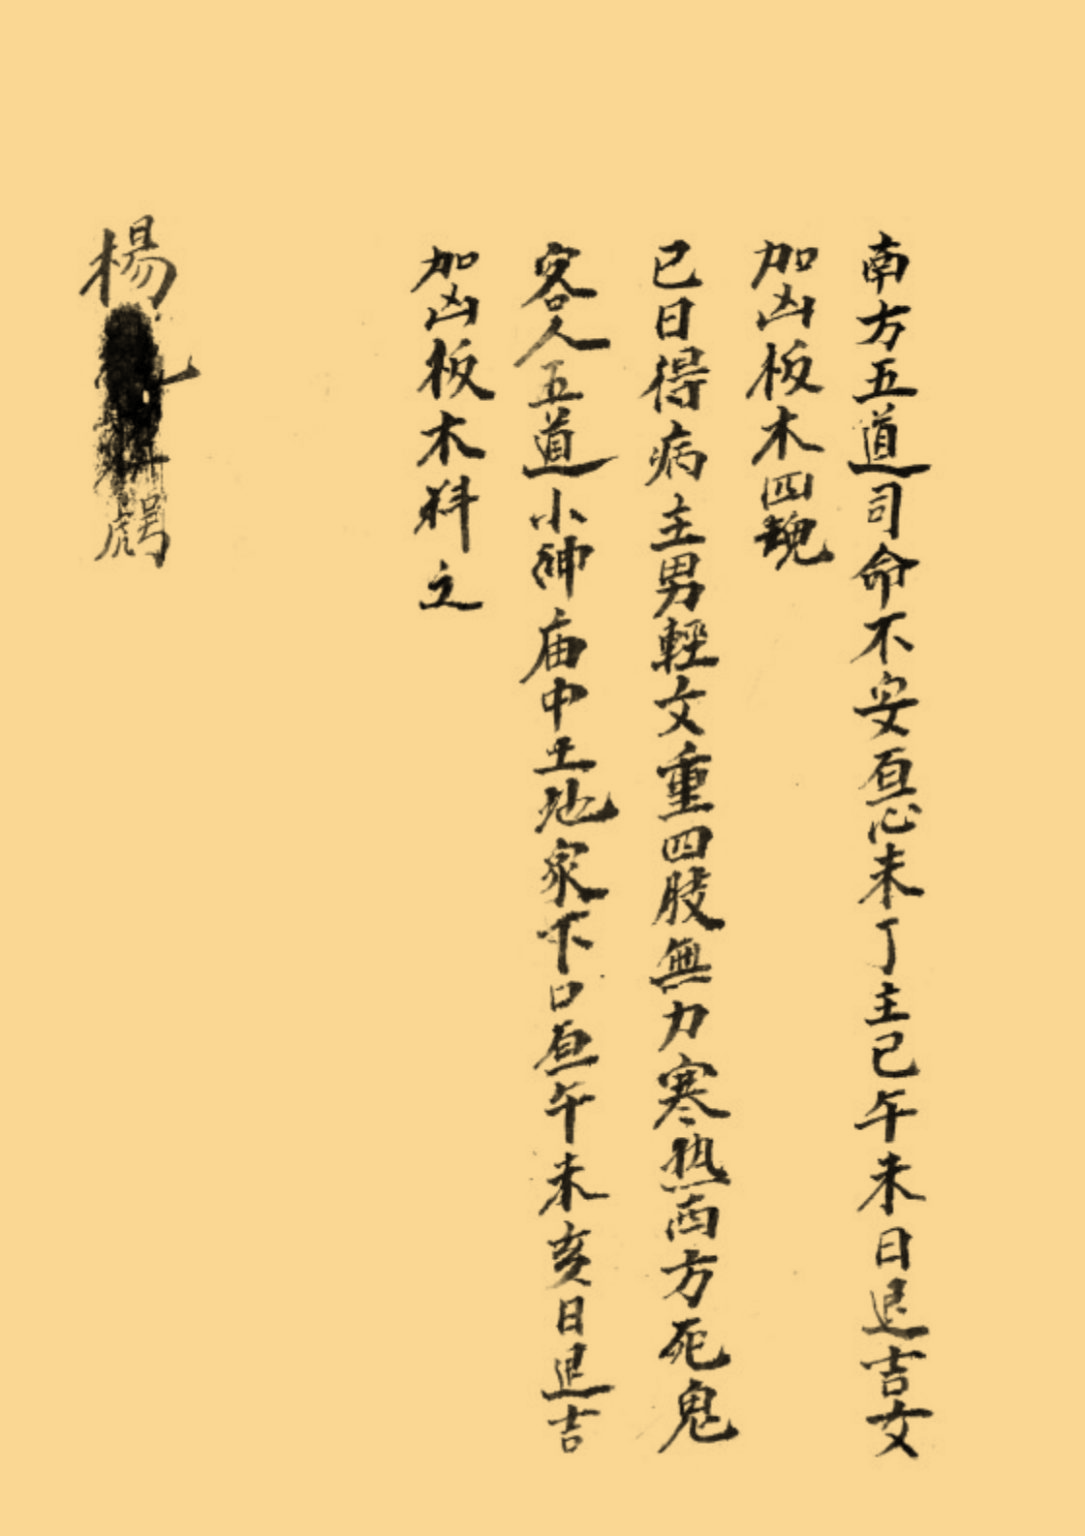 南方五道司命不安亙心未了主己午未日退吉女
加凶板木四魂
已日得病主男輕文重四肢無力寒热西方死鬼
客人五道小神庙中土地家下口亙午未亥日退吉
加凶板木料之
楊